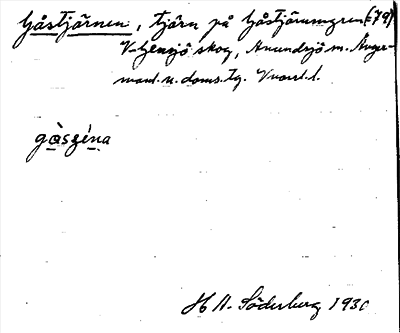 Gåstjärnen, tjärn på Gåstjärnmyren (-79)
V-Gensjö skog, Anundsjö sn. Ånger-
manl. n. doms. tg. Vnorrl. l.
gåsʒéna
H A. Söderberg 1930